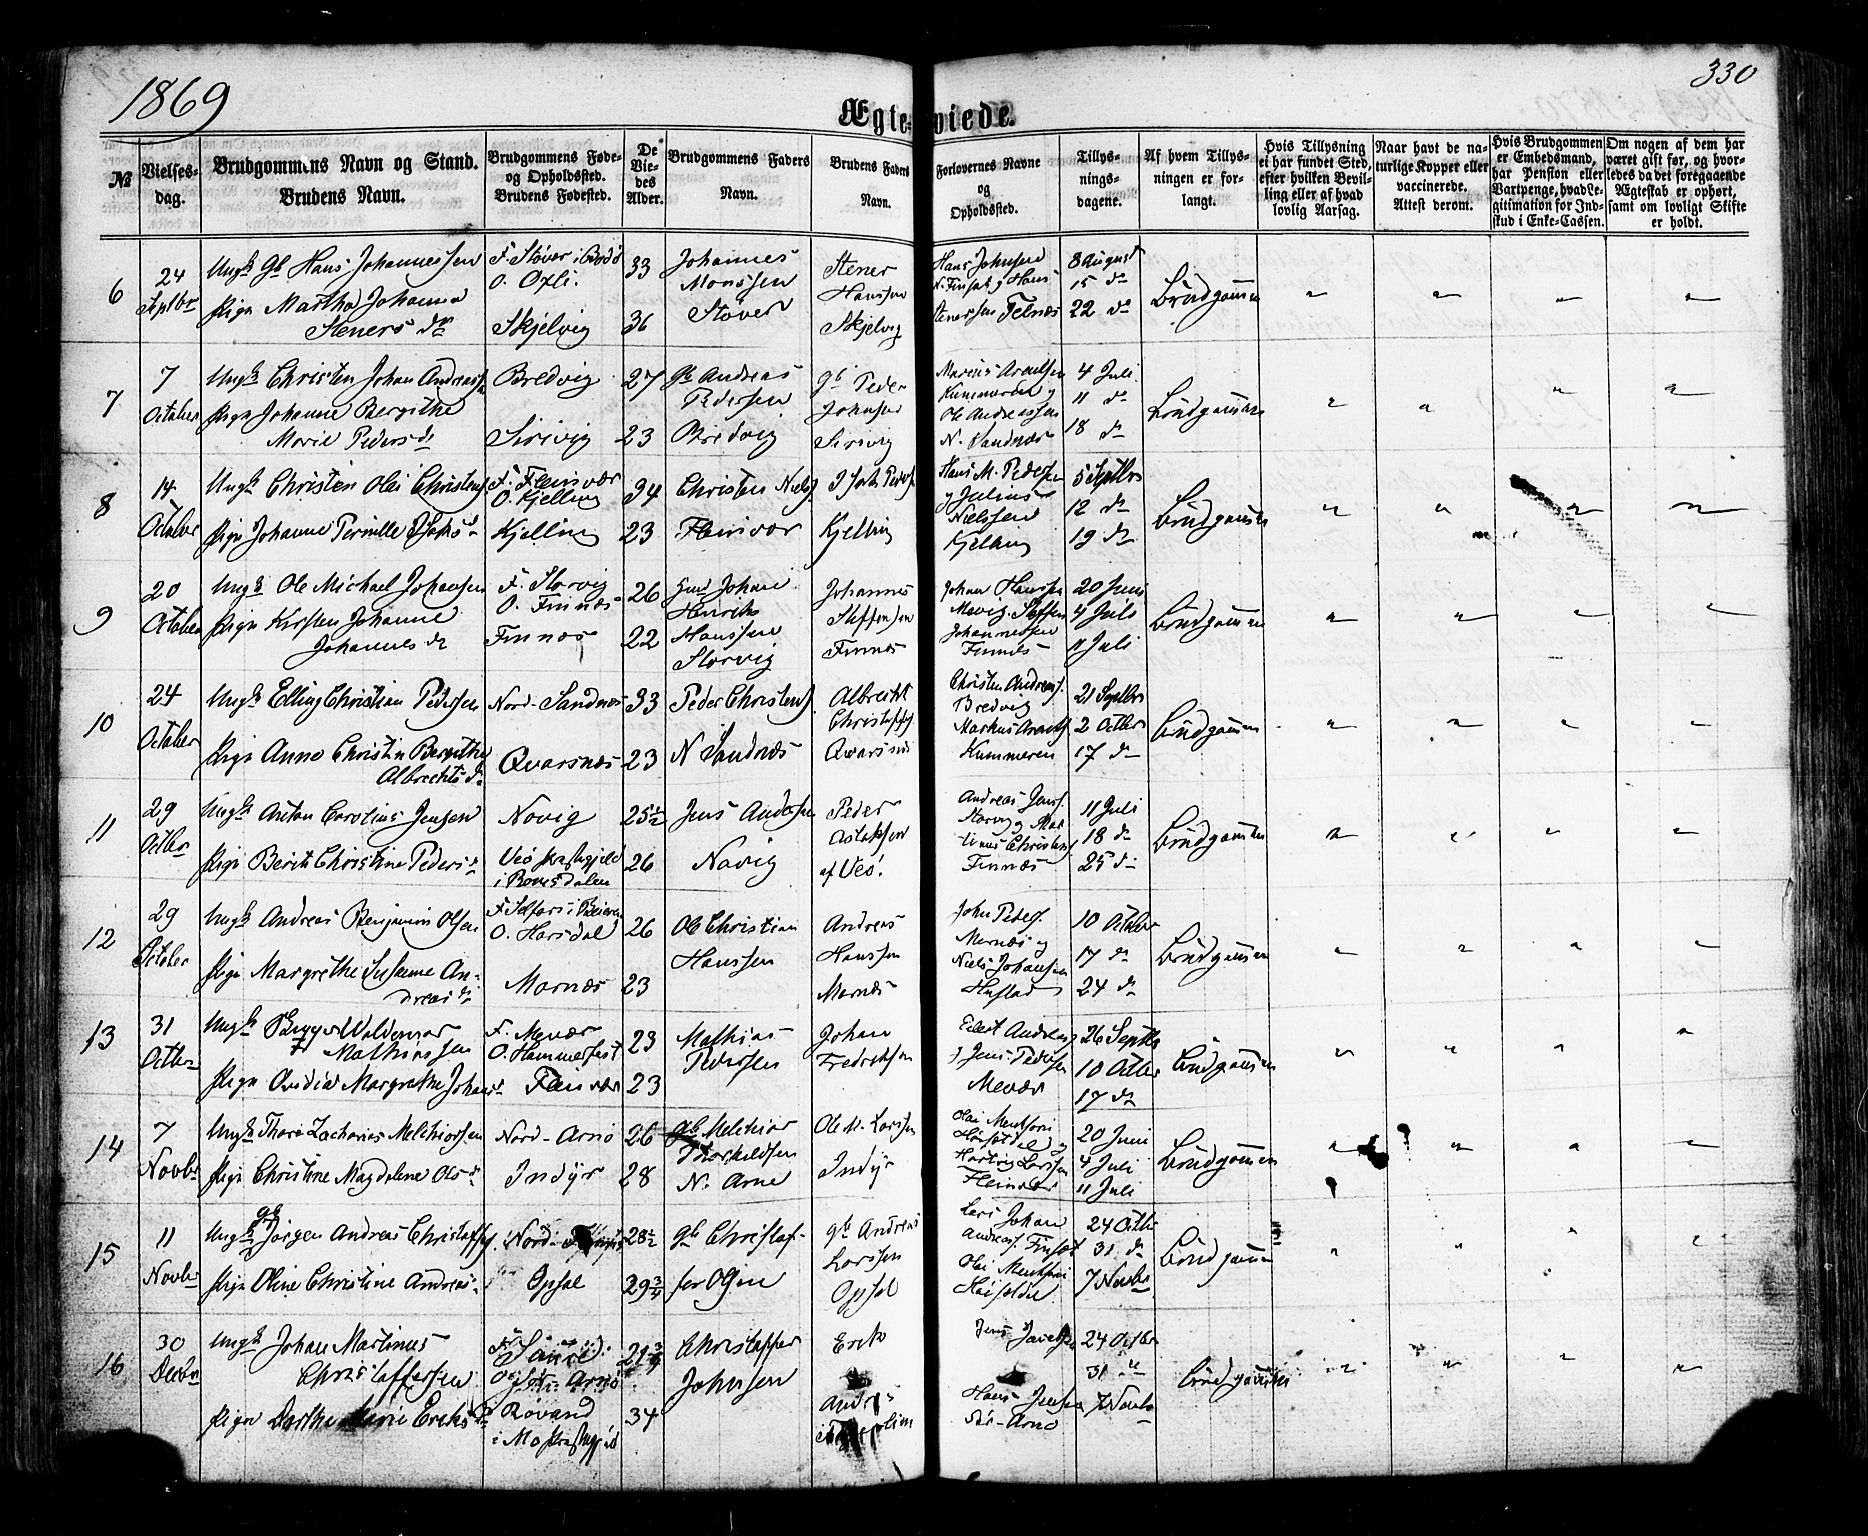 1869
330
Ægteviede.
№
Vielses-
dag.
Brudgommens Navn og Stand.
Brudens Navn.
Brudgommens Føde-
og Opholdssted.
Brudens Fødested.
De
Vie-
des
Alder.
Brudgommens Faders
Navn.
Brudens Faders
Navn.
Forlovernes Navne
og
Opholdssted.
Tillys-
nings-
dagene.
Af hvem Tillys-
ningen er for-
langt.
Hvis Tillysning
ei har fundet Sted,
efter hvilken Bevil-
ling eller af hvad
lovlig Aarsag.
Naar havt de na-
turlige Kopper eller
vaccinerede.
Attest derom.
Hvis Brudgommen
er Embedsmand,
har Pension eller
Vartpenge, hvad Le-
gitimation for Ind-
skud i Enke-Cassen.
Om nogen af dem har
været gift før, og hvor-
ledes da det foregaaende
Ægteskab er ophørt,
samt om lovligt Skifte
er holdt.
6
24
Septbr
Ungk Gb Hans Johannessen
Pign Martha Johanna
Steners dr
F. Støver i Bodø
O. Oxli.
Skjelvig
33
36
Johannes
Monssen
Støver
Stener
Hanssen
Skjelvig
Hans Johnsen
N. Finset og Hans
Stenerssen Felnæs
8 August
15 do
22 do
Brudgommen
7
7
October
Ungk Christen Johan Andreass
Pign Johanne Bergithe
Marie Peders dr
Bredvig
Sirivig
27
23
Gb Andreas
Pedersen
Bredvig
Gb Peder
Johnsen
Sirivig
Marius Arentsen
Kummeren og
Ole Andreassen
N. Sandnæs
4 Juli
11 do
18 do
Brudgommen
8
14
October
Ungk Christen Olai Christens
Pign Johanne Pernille
F. Fleinvær
O. Kjelling
Kjelling
34
23
Christen Niels
Fleinvær
Kjelling
Hans M. Peders
og Julius
Nielssen
Kjelling
5 Septbr
12 do
19 do
Brudgommen
9
20
October
Ungk Ole Michael Johansen
Pign Kirsten Johanne
Johannes dr
F. Storvig
O. Finnæs
Finnæs
26
22
Johan
Henriks
Hanssen
Storvig
Johannes
Steffensen
Finnæs
Johan Hanssen
Steffen
Johannessen
Finnæs
20 Juni
4 Juli
11 Juli
Brudgommen
10
24
October
Ungk Elling Christian Pedersen
Pign Anne Christin Bergithe
Albrechts dr
Nord-Sandnæs
Qvarsnæs
33
23
Peder Christens
N Sandnæs
Albrecht
Christoffs
Qvarsnæs
Christen Andreas
Bredvig
Markus Arents
Kummeren
21 Septbr
2 Octbr
17 do
Brudgommen
11
29
Octbr
Ungk Anton Carolius Jensen
Pign Berit Christine Peders dr
Novig
Veø Præstegjeld
i Romsdalen
25½
26
Jens Andersen
Novig
Peder
af Veø!
Andreas Jens
Christens
Finnæs
11 Juli
18 do
25 do
Brudgommen
12
29
October
Ungk Andreas Benjamin Olsen
Pign Margrethe Susanne An-
dreas dr
F. Selfors i Beieren
O. Horsdal
Mornæs
26
23
Ole Christian
Hanssen
Andreas
Hanssen
Mornæs
John Peders
Mornæs og
Niels Johansen
Hustad
10 Octbr
17 do
24 do
Brudgommen
13
31
Octbr
Ungk Birger Waldemar
Mathiassen
Pign Ovidia Margrethe Johans dr
F. Mevær
O. Hammerfest
Fleinvær
23
23
Mathias
Pedersen
Johan
Fredriksen
Edert Andreas
og Jens Pedersen
Mevær
26 Septbr
10 Octbr
17 do
Brudgommen
14
7
Novbr
Ungk Thore Zacharias Melchiorssen
Pign Christine Magdalene Ols dr
Nord-Arnø
Indyr
26
28
Gb Melchior
Thorkildsen
N. Arnø
Ole M. Larssen
Indyr
Olai Mentsen
Hartvig Larssen
Fleinvær
20 Juni
4 Juli
11 Juli
Brudgommen
15
11
Novbr
Ungk gb Jørgen Andreas Christoffs
Pign Oline Christine Andreas
Nord
Opsal
28½
29¾
Gb Christof-
fer Olsen
Gb Andreas
Larssen
Opsal
Lars Johan
Andreas Finset
Olai Mentsen
24 Octbr
31 do
7 Novbr
Brudgommen
16
30
Decbr
Ungk Johan Martinus
Christoffersen
Pign Dorthe Marie Eriks dr
Sør-Arnø
Røvand
i Mo Præstegjeld
21¾
34
Christoffer
Johnsen
Erik
Andreas
Jens
Hans Jensen
Sør-Arnø
24 Octbr
31 "
7 Novbr
Brudgommen